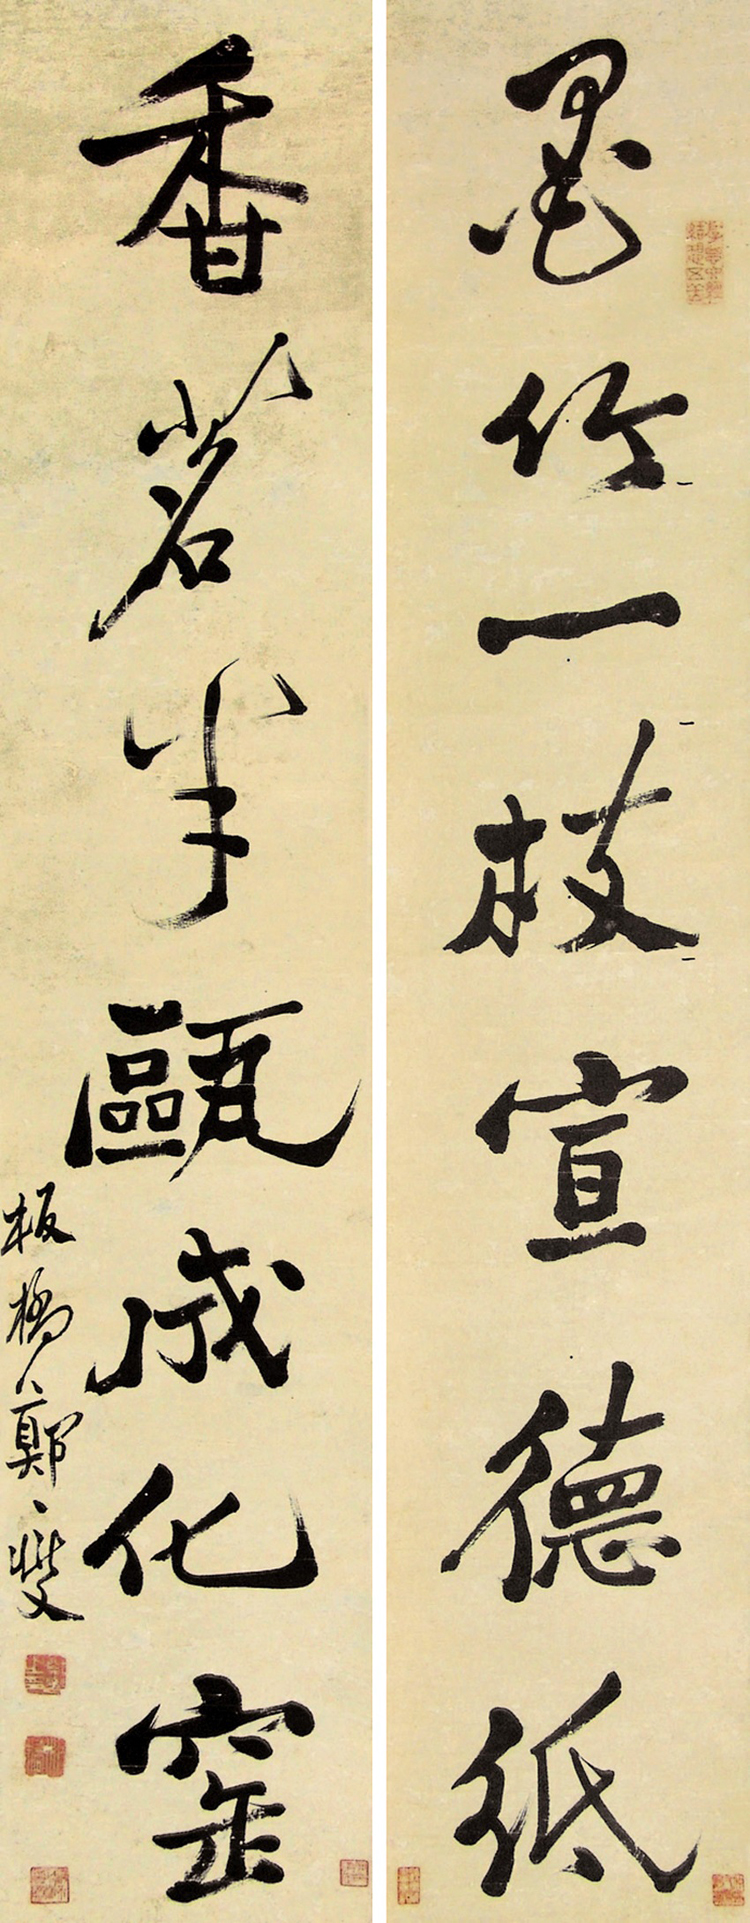 墨竹一枝宣德纸
香茗半甌成化窑
板橋鄭燮